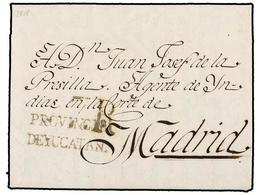 A.D.n Juan Josef de la
Presilla. Agente de Yn-
dias en la Corte de
Madrid
PROVINCIA
DE YUCATAN.